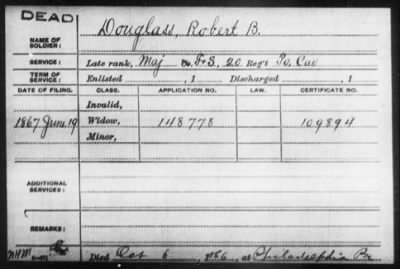 DEAD
NAME OF SOLDIER: Douglass, Robert B.
SERVICE: Late rank, Maj Co. F&S, 20 Reg't Pa. Cav
TERM OF SERVICE: Enlisted , 1 Discharged , 1
DATE OF FILING. CLASS. APPLICATION NO. LAW. CERTIFICATE NO.
Invalid,
1867 June 19 Widow, 148778 109894
Minor,
ADDITIONAL SERVICES:
REMARKS:
Died Oct 6, 1866, at Philadelphia Pa